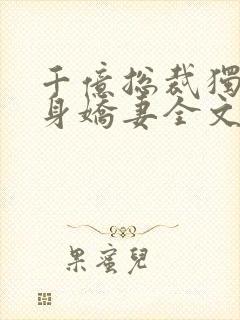 千億总裁獨
身嬌妻全文
果蜜兒